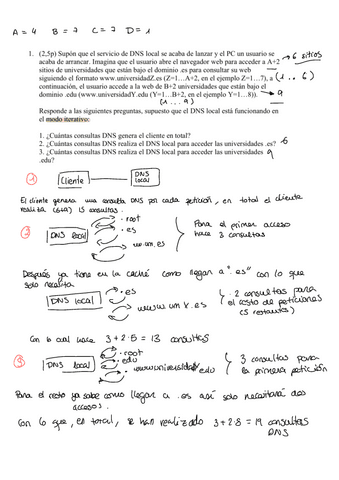 A = 4 B = 7 C = 7 D = 1
1. (2,5p) Supón que el servicio de DNS local se acaba de lanzar y el PC un usuario se
acaba de arrancar. Imagina que el usuario abre el navegador web para acceder a A+2 → 6 sitios
sitios de universidades que están bajo el dominio .es para consultar su web
siguiendo el formato www.universidadZ.es (Z=1…A+2, en el ejemplo Z=1…7), a (1 .. 6)
continuación, el usuario accede a la web de B+2 universidades que están bajo el → 9
dominio .edu (www.universidadY.edu (Y=1…B+2, en el ejemplo Y=1…8)).
(1 ... 9)
Responde a las siguientes preguntas, supuesto que el DNS local está funcionando en
el modo iterativo:
1. ¿Cuántas consultas DNS genera el cliente en total?
2. ¿Cuántas consultas DNS realiza el DNS local para acceder las universidades .es? 6
3. ¿Cuántas consultas DNS realiza el DNS local para acceder las universidades 9
.edu?
1 Cliente DNS local
El cliente genera una consulta DNS por cada petición, en total el cliente
realiza (6+9) 15 consultas.
2 DNS local
· root
· es
www.um.es
Para el primer acceso
hace 3 consultas
Después ya tiene en la caché como llegar a ".es" con lo que
solo necesita
DNS local
· es
www.umX.es
2 consultas para
el resto de peticiones
(5 restantes)
Con lo cual hace 3 + 2·5 = 13 consultas
3 DNS local
· root
· edu
· www.universidadY.edu
3 consultas para
la primera petición
Para el resto ya sabe como llegar a .es así solo necesitará dos
accesos.
Con lo que, en total, se han realizado 3 + 2·8 = 19 consultas
DNS